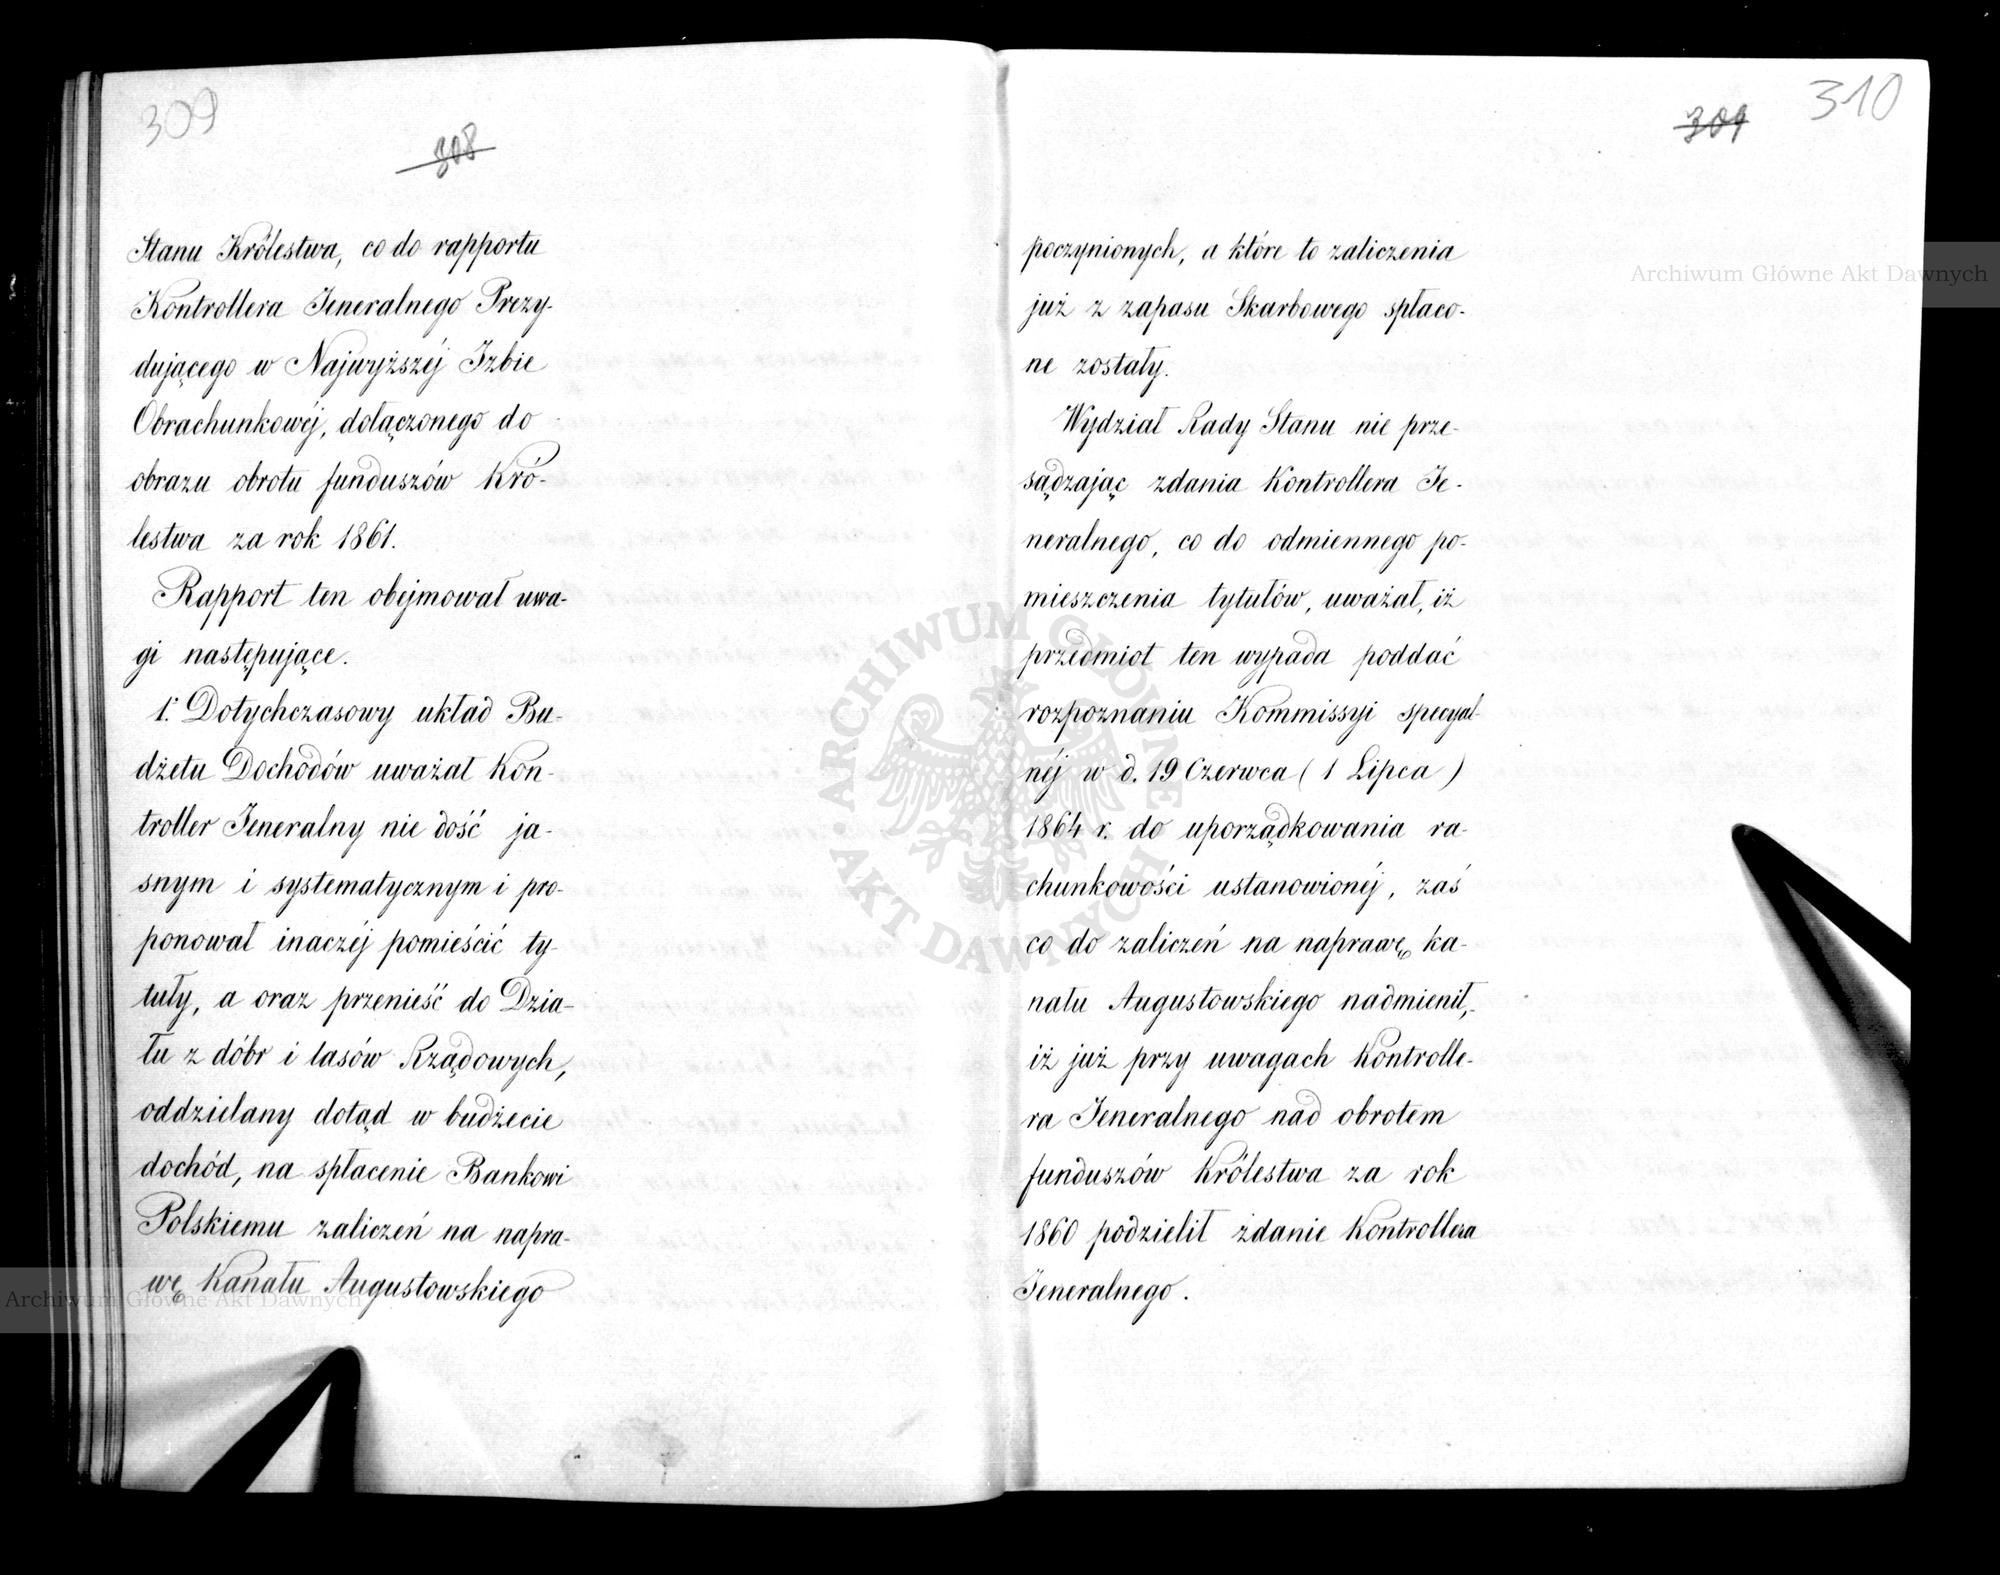 309
308
Stanu Królestwa, co do rapportu
Kontrollera Jeneralnego Prezy-
dującego w Najwyższéj Izbie
Obrachunkowéj, dołączonego do
obrazu obrotu funduszów Kró-
lestwa za rok 1861.
Rapport ten obejmował uwa-
gi następujące.
1. Dotychczasowy układ Bu-
dżetu Dochodów uważał Kon-
troller Jeneralny nie dość ja-
snym i systematycznym i pro-
ponował inaczéj pomieścić ty-
tuły, a oraz przenieść do Dzia-
łu z dóbr i lasów Rządowych,
oddzielany dotąd w budżecie
dochód, na spłacenie Bankowi
Polskiemu zaliczeń na napra-
wę Kanału Augustowskiego
310
309
poczynionych, a które to zaliczenia
już z zapasu Skarbowego spłaco-
ne zostały.
Wydział Rady Stanu nie prze-
sądzając zdania Kontrollera Je-
neralnego, co do odmiennego po-
mieszczenia tytułów, uważał, iż
przedmiot ten wypada poddać
rozpoznaniu Kommissyi specyal-
néj w d. 19 Czerwca (1 Lipca)
1864 r. do uporządkowania ra-
chunkowości ustanowionéj, zaś
co do zaliczeń na naprawę ka-
nału Augustowskiego nadmienił,
iż już przy uwagach Kontrolle-
ra Jeneralnego nad obrotem
funduszów Królestwa za rok
1860 podzielił zdanie Kontrollera
Jeneralnego.
Archiwum Główne Akt Dawnych
Archiwum Główne Akt Dawnych
ARCHIWUM GŁÓWNE AKT DAWNYCH